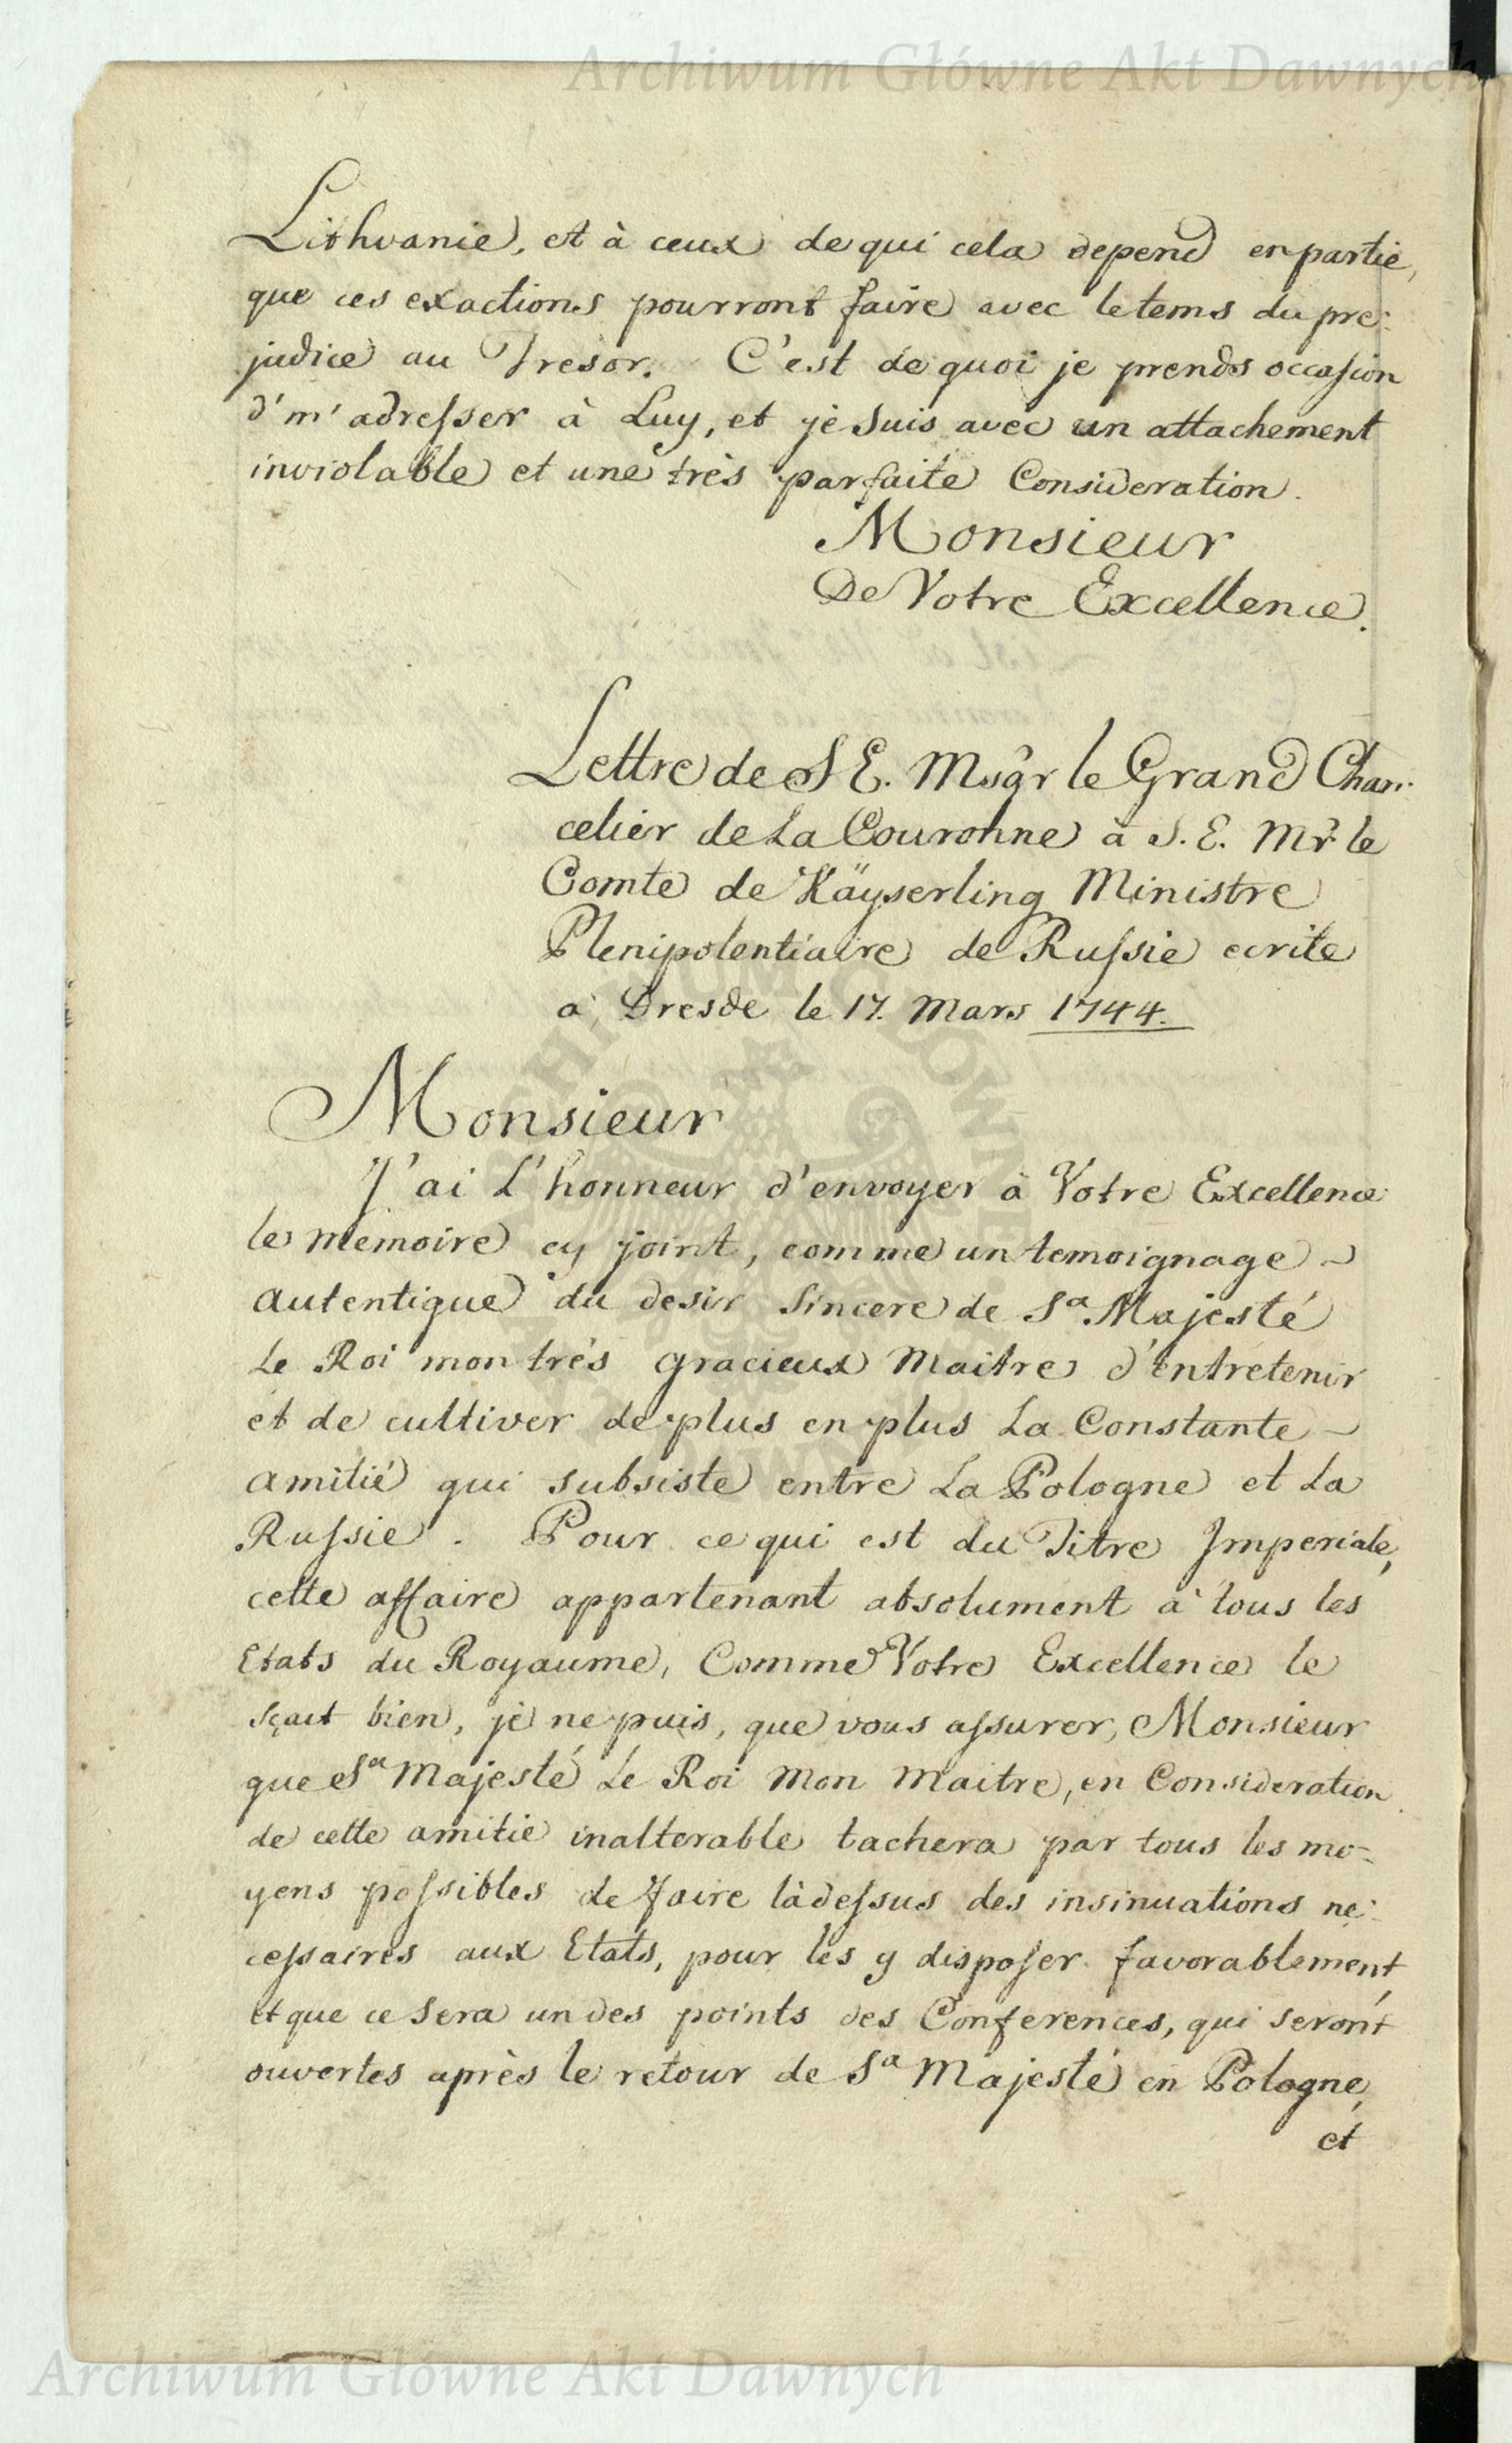 Archiwum Główne Akt Dawnych
Lithvanie, et à ceux de qui cela depend en partie,
que ces exactions pourront faire avec le tems du pre-
judice au Tresor. C'est de quoi je prends occasion
d'm'adresser à Luy, et je suis avec un attachement
inviolable et une très parfaite Consideration.
Monsieur
De Votre Excellence.
Lettre de S E. Msgr le Grand Chan-
celier de La Couronne à S. E. Mr. le
Comte de Käyserling Ministre
Plenipotentiaire de Russie ecrite
a Dresde le 17. Mars 1744.
Monsieur
J'ai L'honneur d'envoyer à Votre Excellence
le mémoire cy joint, comme un temoignage
autentique du desir sincere de Sa Majesté
Le Roi mon très gracieux Maitre d'entretenir
et de cultiver de plus en plus La Constante
amitié qui subsiste entre La Pologne et La
Russie. Pour ce qui est du Titre Imperiale,
cette affaire appartenant absolument à tous les
Etats du Royaume, Comme Votre Excellence le
sçait bien, je ne puis, que vous assurer, Monsieur
que Sa Majesté Le Roi Mon Maitre, en Consideration
de cette amitie inalterable tachera par tous les mo-
yens possibles de faire làdessus des insinuations ne-
cessaires aux Etats, pour les y disposer favorablement,
et que ce sera un des points des Conferences, qui seront
ouvertes après le retour de Sa Majesté en Pologne,
et
Archiwum Główne Akt Dawnych